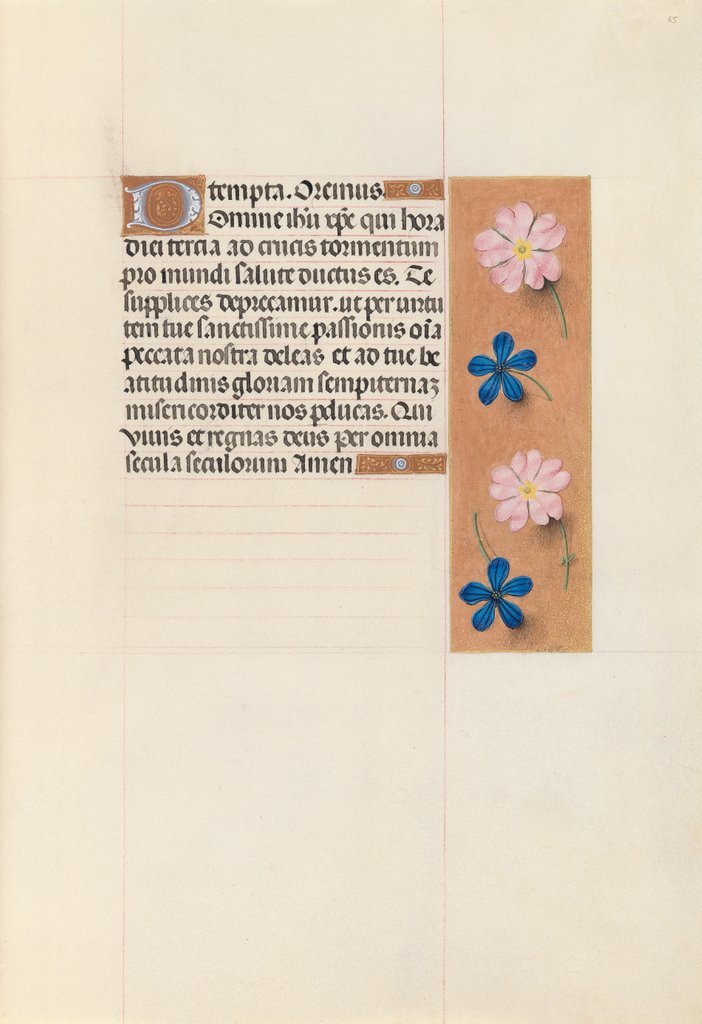 65
tempta. Oremus.
Domine ihu xpe qui hora
diei tercia ad crucis tormentum
pro mundi salute ductus es. Te
supplices deprecamur. ut per uirtu
tem tue sanctissime passionis oia
peccata nostra deleas et ad tue be
atitudinis gloriam sempiternaz
misericorditer nos pducas. Qui
viuis et regnas deus per omnia
secula seculorum Amen